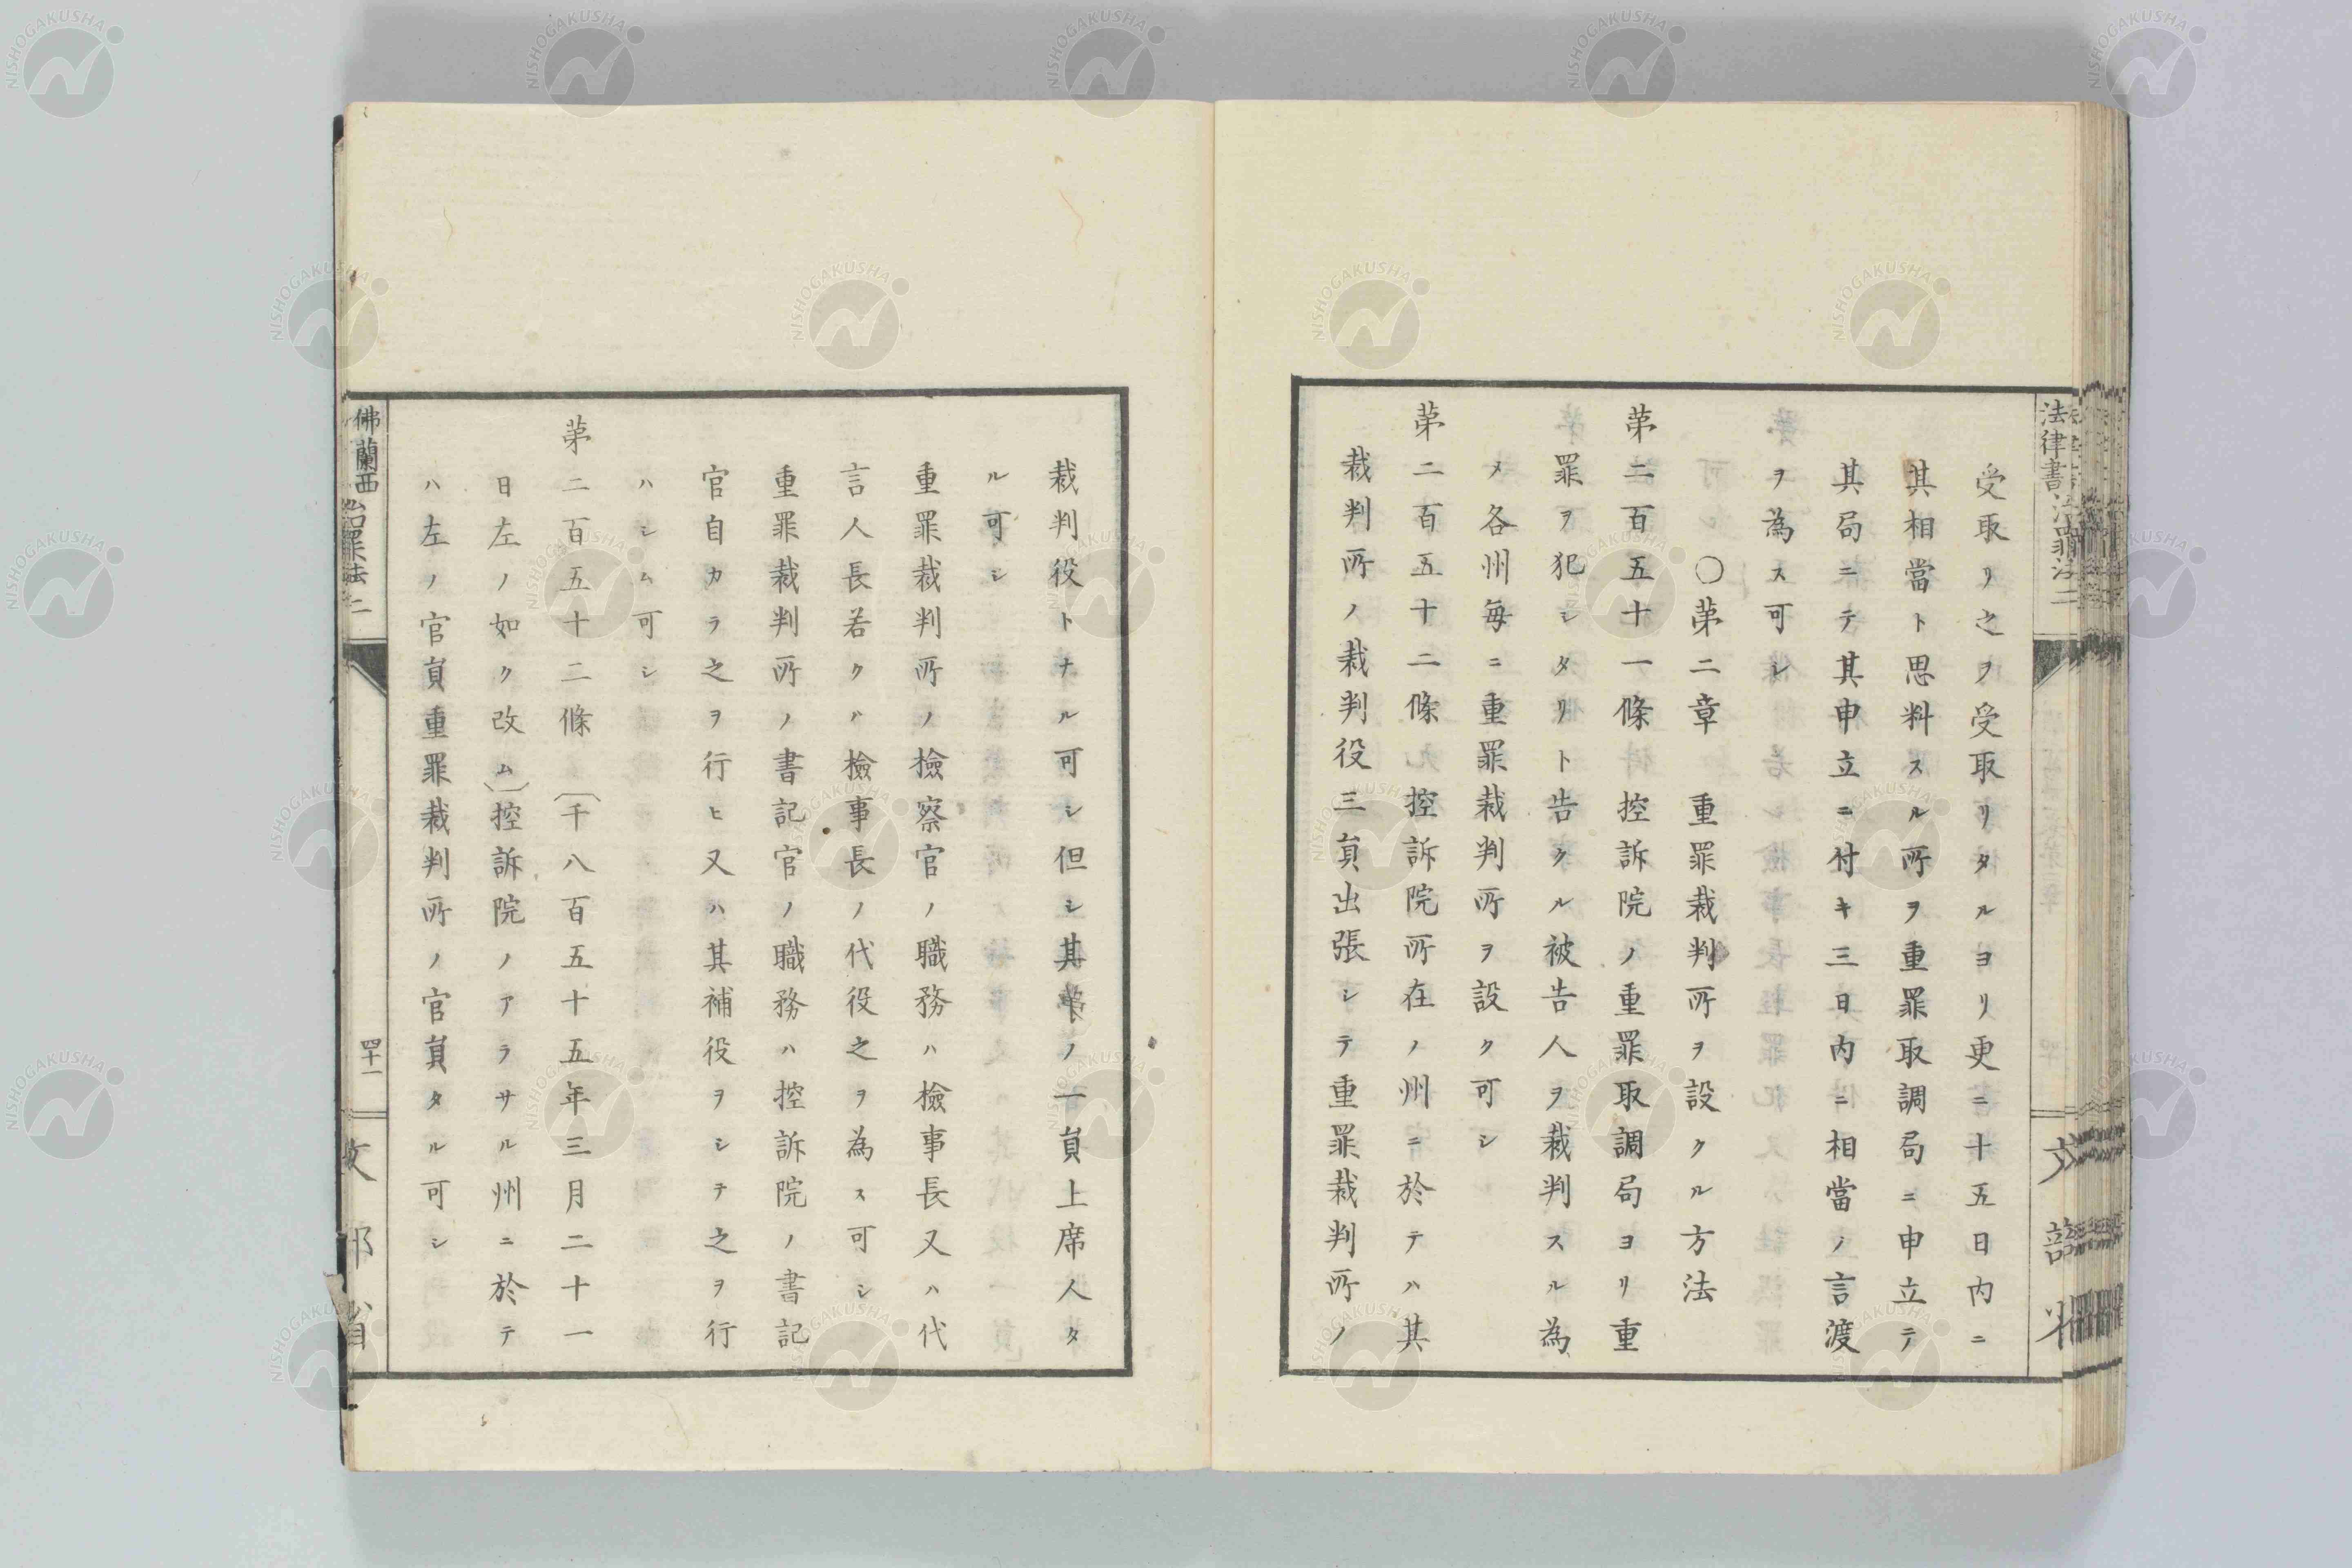 受取リ之ヲ受取リタルヨリ更ニ十五日内ニ
其相當ト思料スル所ヲ重罪取調局ニ申立テ
其局ニテ其申立ニ付キ三日内ニ相當ノ言渡
ヲ為ス可シ
〇第二章 重罪裁判所ヲ設クル方法
第二百五十一條 控訴院ノ重罪取調局ヨリ重
罪ヲ犯シタリト告クル被告人ヲ裁判スル為
メ各州毎ニ重罪裁判所ヲ設ク可シ
第二百五十二條 控訴院所在ノ州ニ於テハ其
裁判所ノ裁判役三員出張シテ重罪裁判所ノ
裁判役トナル可シ但シ其中ノ一員上席人タ
ル可シ
重罪裁判所ノ檢察官ノ職務ハ檢事長又ハ代
言人長若クハ檢事長ノ代役之ヲ為ス可シ
重罪裁判所ノ書記官ノ職務ハ控訴院ノ書記
官自カラ之ヲ行ヒ又ハ其補役ヲシテ之ヲ行
ハシム可シ
第二百五十二條 (千八百五十五年三月二十一
日左ノ如ク改ム)控訴院ノアラサル州ニ於テ
ハ左ノ官員重罪裁判所ノ官員タル可シ
佛蘭西
治罪法二
四十一
文部省
NISHOGAKUSHA